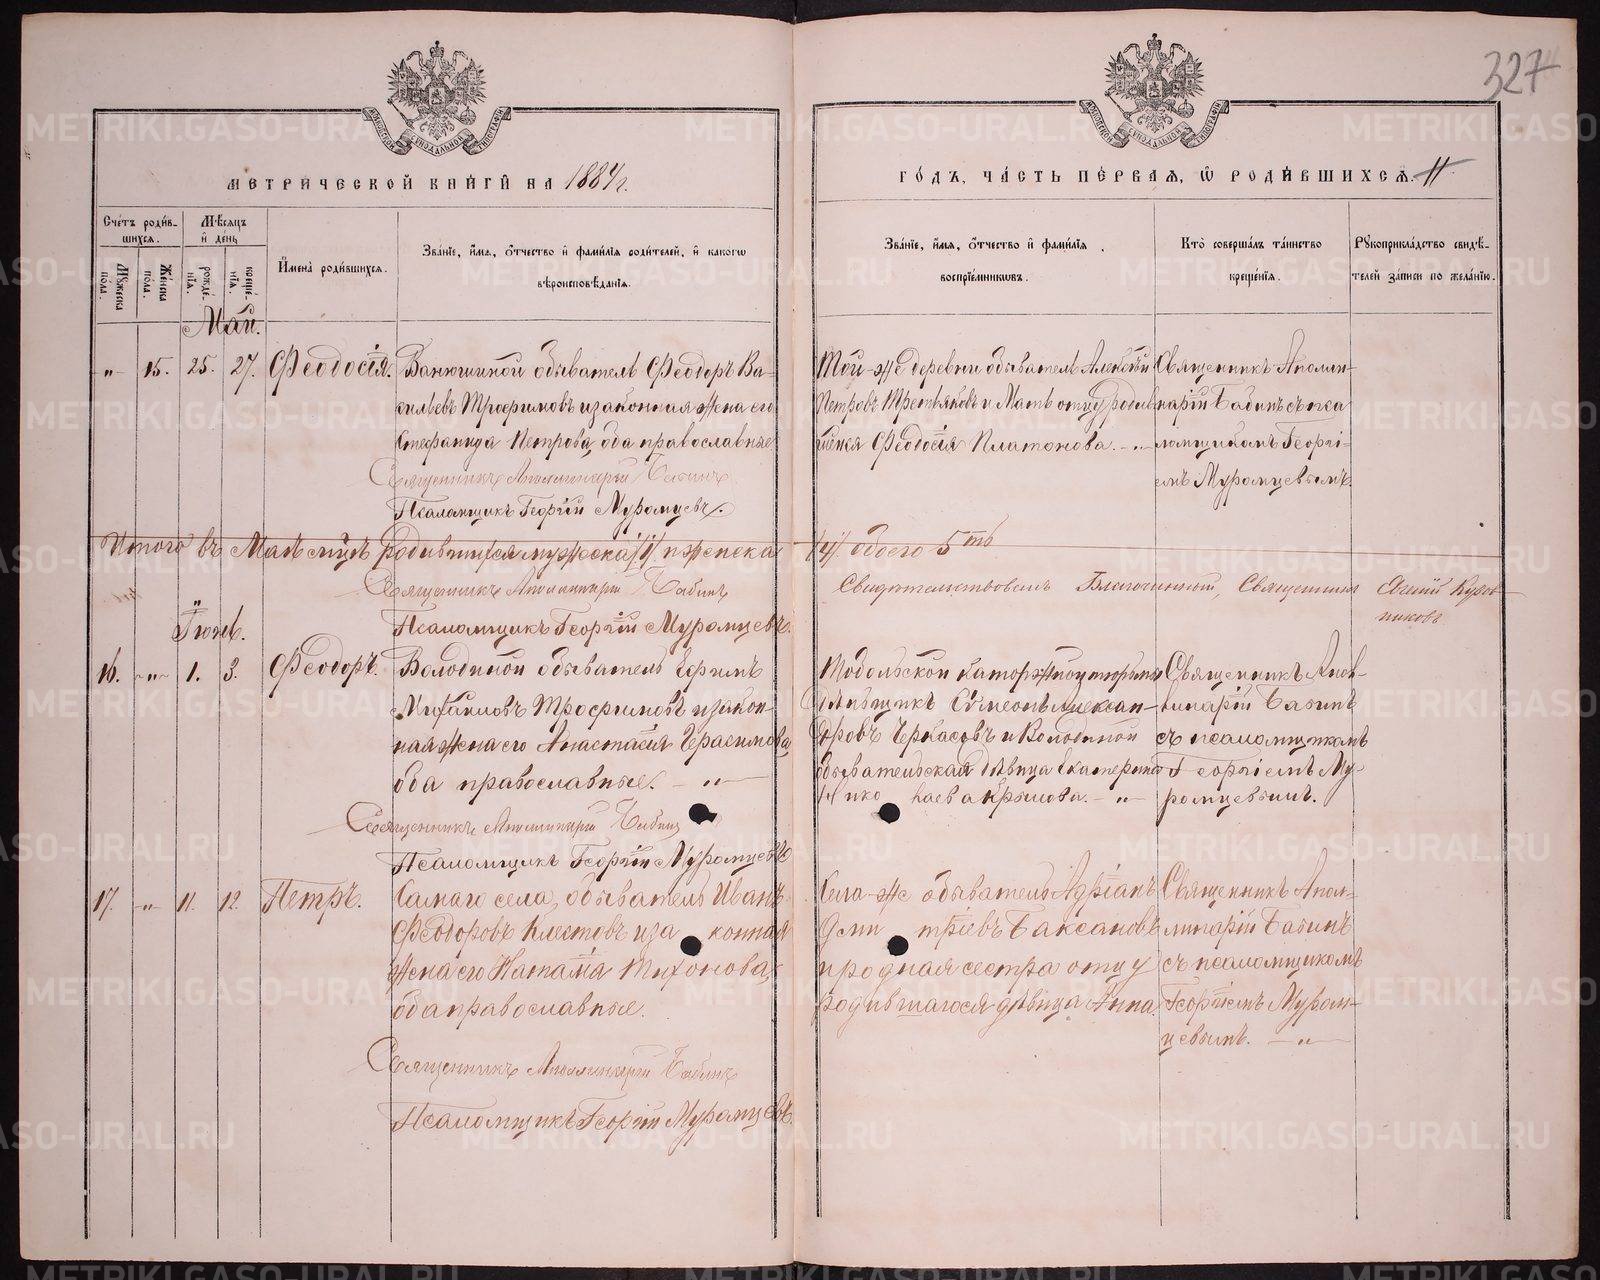 327
МОСКОВСКОЙ СѴНОДАЛЬНОЙ ТИПОГРАФІИ
МОСКОВСКОЙ СѴНОДАЛЬНОЙ ТИПОГРАФІИ
МЕТРИЧЕСКОЙ КНИГИ НА 1884 г.
ГОДЪ, ЧАСТЬ ПЕРВАЯ, Ѡ РОДИВШИХСЯ.
Счетъ родив-
шихся.
Мѣсяцъ
и день
Мꙋжеска
пола.
Женска
пола.
рожде-
нія.
креще-
нія.
Имена родившихся.
Званіе, имя, отчество и фамилія родителей, и какогѡ
вѣроисповѣданія.
Званіе, имя, отчество и фамилія
воспріемникѡвъ.
Кто совершалъ таинство
крещенія.
Рꙋкоприкладство свидѣ-
телей записи по желанію.
Май.
„ 15. 25. 27. Феодосія.
Ванюшиной обыватель Феодоръ Ва-
сильевъ Трофимовъ и законная жена его
Стефанида Петрова, оба православные
Священникъ Аполлинарій Бабинъ
Псаломщикъ Георгій Муромцевъ.
Той-же деревни обыватель Алексѣй
Петровъ Третьяковъ и мать отцу родив-
шейся Феодосія Платонова. „
Священникъ Аполли-
нарій Бабинъ съ пса
ломщикомъ Георгі-
емъ Муромцевымъ.
Итого въ Маѣ мѣсяцѣ родившихся мужеска /1/ и женска /4/ обоего 5ть
Священникъ Аполлинарій Бабинъ
Псаломщикъ Георгій Муромцевъ.
Свидѣтельствовалъ Благочинный, Священникъ
Іюнь.
16. „ 1. 3. Феодоръ.
Володиной обыватель Ефимъ
Михаиловъ Трофимовъ и закон-
ная жена его Анастасія Герасимова
оба православные. „
Священникъ Аполлинарій Бабинъ
Псаломщикъ Георгій Муромцевъ
Тобольской каторжной тюрьмы
Симеонъ Алексан-
дровъ Черкасовъ и Володиной
обывательская дѣвица Екатерина
Николаева Крылова. „
Священникъ Апол-
линарій Бабинъ
съ псаломщикомъ
Георгіемъ Му-
ромцевымъ.
17. „ 11. 12. Петръ.
Самаго села, обыватель Иванъ
Феодоровъ Клестовъ и законная
жена его Наталія Тихонова,
оба православные.
Священникъ Аполлинарій Бабинъ
Псаломщикъ Георгій Муромцевъ.
Села-же обыватель Адріанъ
Димитріевъ Баксановъ
и родная сестра отцу
родившагося дѣвица Анна.
Священникъ Апол-
линарій Бабинъ
съ псаломщикомъ
Георгіемъ Муром-
цевымъ. „
METRIKI.GASO-URAL.RU